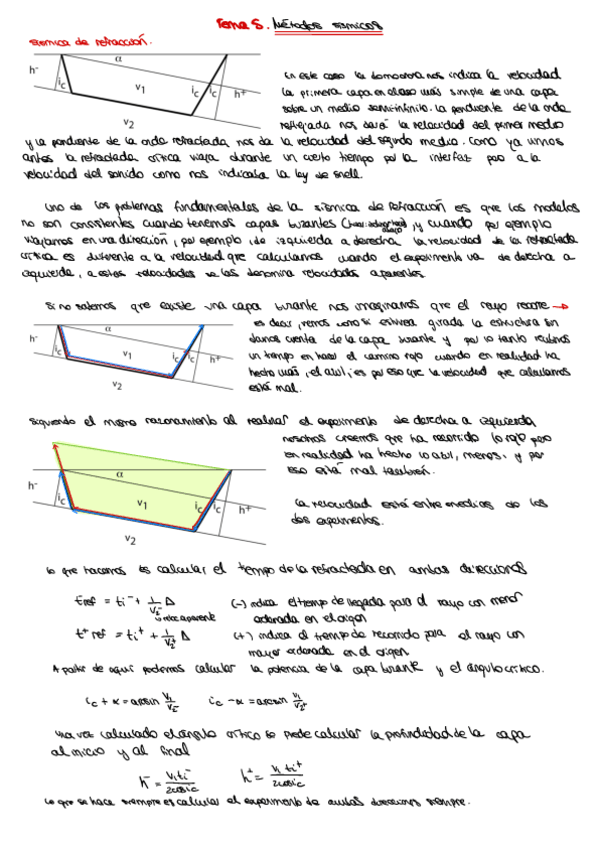 Tema 5. Métodos sísmicos
sísmica de refracción.
h- ic α v1 ic ic h+
v2
En este caso la domocrona nos indica la velocidad
la primera capa en el caso más simple de una capa
sobre un medio semi-infinito. La pendiente de la onda
reflejada nos dará la velocidad del primer medio
y la pendiente de la onda refractada nos da la velocidad del segundo medio. Como ya vimos
antes la refractada crítica viaja durante un cierto tiempo por la interfaz pero a la
velocidad del sonido como nos indicaba la ley de snell.
Uno de los problemas fundamentales de la sísmica de refracción es que los modelos
no son consistentes cuando tenemos capas buzantes, y cuando por ejemplo
viajamos en una dirección, por ejemplo, de izquierda a derecha la velocidad de la refractada
crítica es diferente a la velocidad que calculamos cuando el experimento va de derecha a
izquierda, a estas velocidades se les denomina velocidades aparentes.
Si no sabemos que existe una capa buzante nos imaginamos que el rayo recorre →
es decir, vemos como si estuviera girada la estructura sin
darnos cuenta de la capa buzante y por lo tanto recibimos
un tiempo en hacer el camino rojo cuando en realidad ha
hecho más, el azul, es por eso que la velocidad que calculamos
está mal.
h- ic α v1 ic ic h+
v2
Siguiendo el mismo razonamiento al realizar el experimento de derecha a izquierda
nosotros creemos que ha recorrido lo rojo pero
en realidad ha hecho lo azul, menos. y por
eso está mal también.
La velocidad está entre medias de los
dos experimentos.
h- ic α v1 ic ic h+
v2
Lo que hacemos es calcular el tiempo de la refractada en ambas direcciones
tref = ti- + 1/v2- Δ (-) indica el tiempo de llegada para el rayo con menor
ordenada en el origen
t+ref = ti+ + 1/v2+ Δ (+) indica el tiempo de recorrido para el rayo con
mayor ordenada en el origen
A partir de aquí podemos calcular la potencia de la capa buzante y el ángulo crítico.
ic + α = arcsin v1/v2- ic - α = arcsin v1/v2+
Una vez calculado el ángulo crítico se puede calcular la profundidad de la capa
al inicio y al final
h- = v1 ti-/2cos ic h+ = v1 ti+/2cos ic
Lo que se hace siempre es calcular el experimento de ambas direcciones siempre.